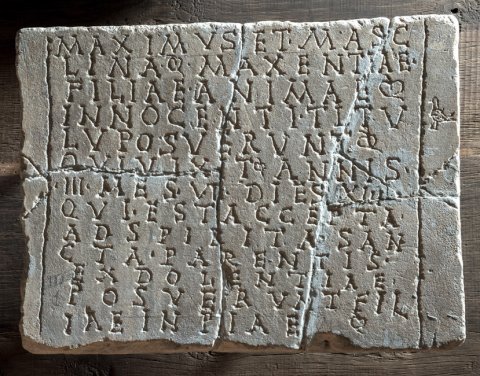 MAXIMVS ET MASC
LINA ❦ MAXENTIAE
FILIAE ANIMAE ❦
INNOCENTI TITV
LV POSVERVNT ❦
QVI VIXIT ANNIS
III MES VI DIES XIII
QVI EST ACCEPTA
AD SPIRITA SAN
CTA PARENTIS
EX DOLENTIAE
POSVERVNT FIL
IAE INPIAE ❦